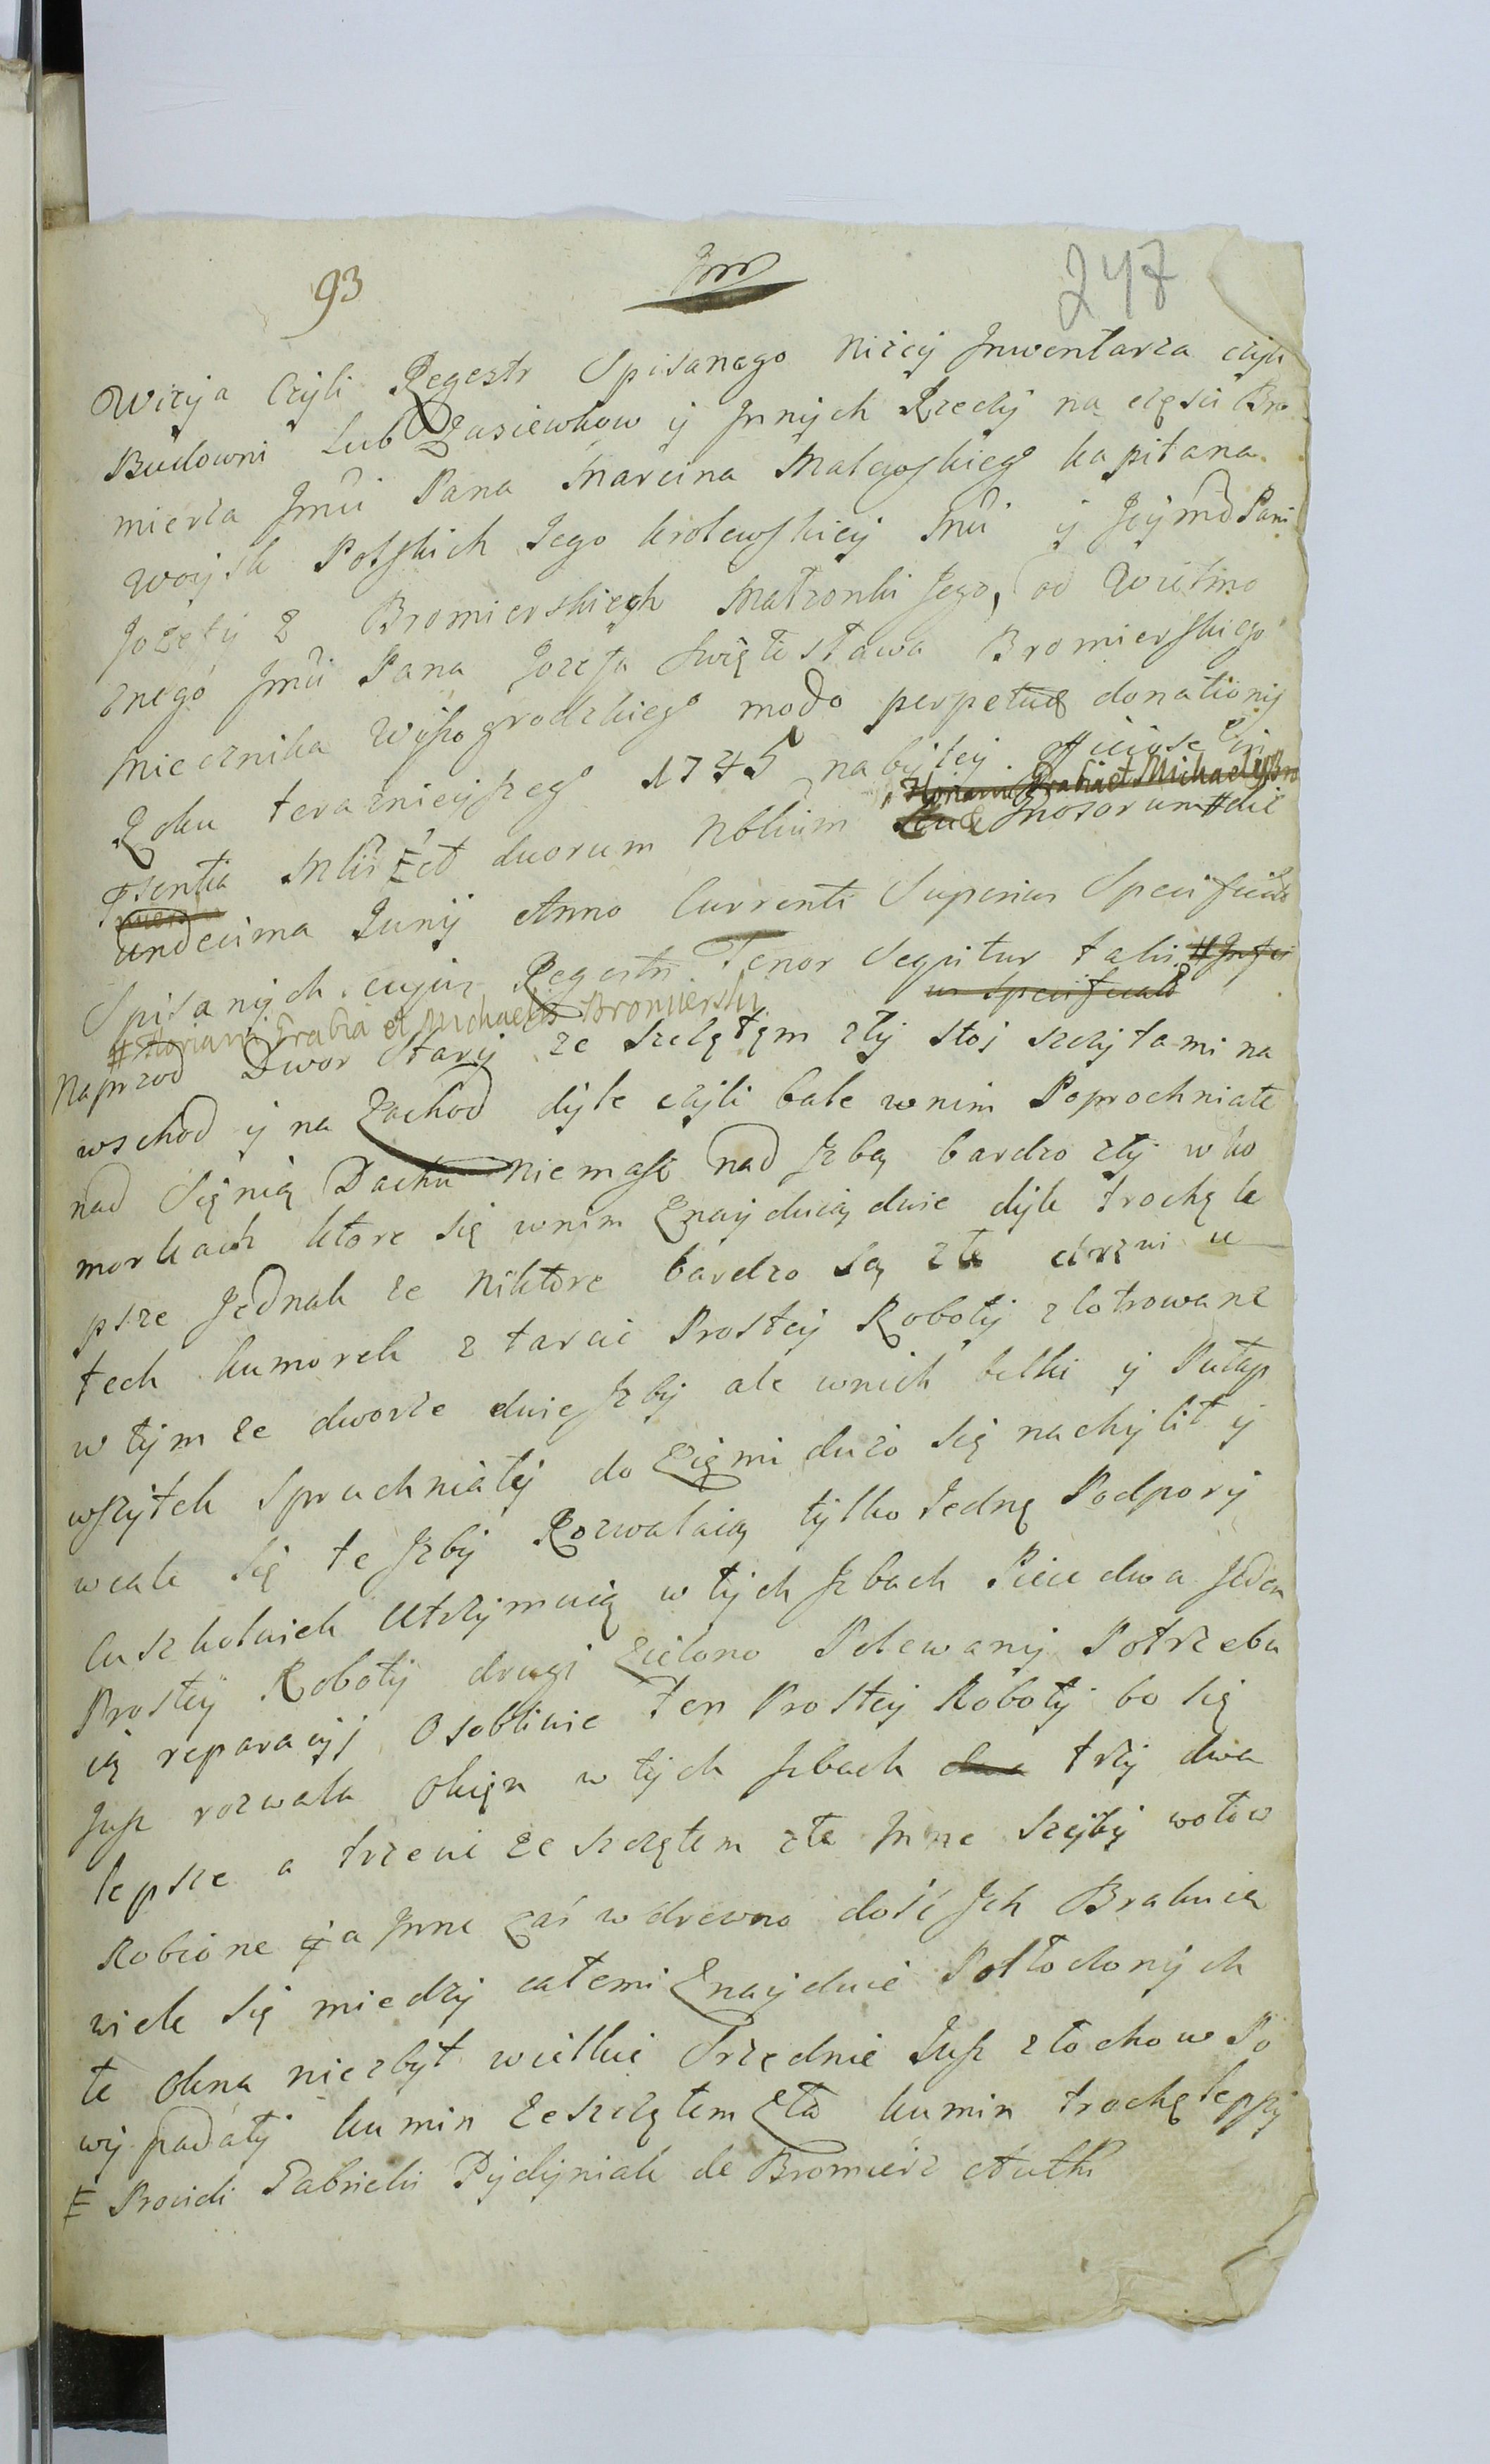 93
247
Wizyja Czyli Regestr Spisanego niżey Jnwentarza czyli
Budowni Lub Zasiewkow y Jnnych Rzeczy na częsci Bro
mierza Jmci Pana Marcina Maleyskiego kapitana
woysk Polskich Jego krolewskiey Mci y Jeymci Pani
Jozefy z Bromierskiech Małzonki Jego, od Wielmo
znego Jmci Pana Jozefa Swiętosława Bromierskiego
Miecznika Wyszogrodzkiego modo perpetuae donationis
Roku teraznieyszego 1745 nabytey officiose in
Florian Grabia et Michaelis Bro
psentia Mlis Et duorum Nblium Gnosorum # die
undecima Junij Anno Currenti Superius Specificato
Spisanych cujus Regestri Tenor Sequitur talis # Jnfe
ius Specificato
# Floriani Grabia et Michaelis Bromierski
Naprzod Dwor Stary ze szczętęm zły stoi szczytami na
wschod y na Zachod dyle czyli bale wnim Poprochniałe
nad Sięnią Dachu niemasz nad Jzbą bardzo zły w ko
morkach ktore się wnim Znayduią dwie dyle trochę le
psze Jednak ze niktore bardzo są złe drzwi u
tech kumorek z tarcic Prostey Roboty zlotrowane
w tym ze dworze dwie Jzby ale wnich belki y Pułap
wszytek spruchniały do Ziemi duzo się nachylił y
wcale się te Jzby Rozwalaią tylko Jedne Podpory
cuszkolwiek utrzymuią w tych Jzbach Piece dwa Jeden
Prostey Roboty drugi Zielono Polewany Potrzebu
ią reparacyi Osobliwie ten Prostey Roboty bo się
Jusz rozwala Okięn w tych Jzbach dwa trzy dwa
lepsze a trzecie ze szczętem złe Jnne szyby wołow
Robione a Jnne Zaś w drewno dość Jch Brakuie
wiele się miedzy całemi Znayduie Potłoczonych
te okna niezbyt wielkie Srzednie Jusz złochow Po
wypadały kumin zeszczętem Zły kumin trochę lepszy
E Providi Gabrielis Pydyniak de Bromierz